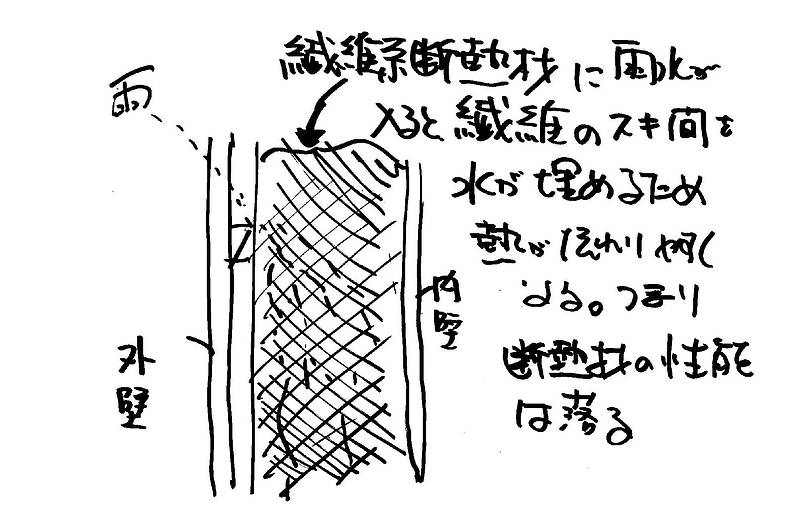 繊維系断熱材に雨水が
入ると繊維のスキ間を
水が埋めるため
熱が伝わり易く
なる。つまり
断熱材の性能
は落る
雨
外壁
内壁